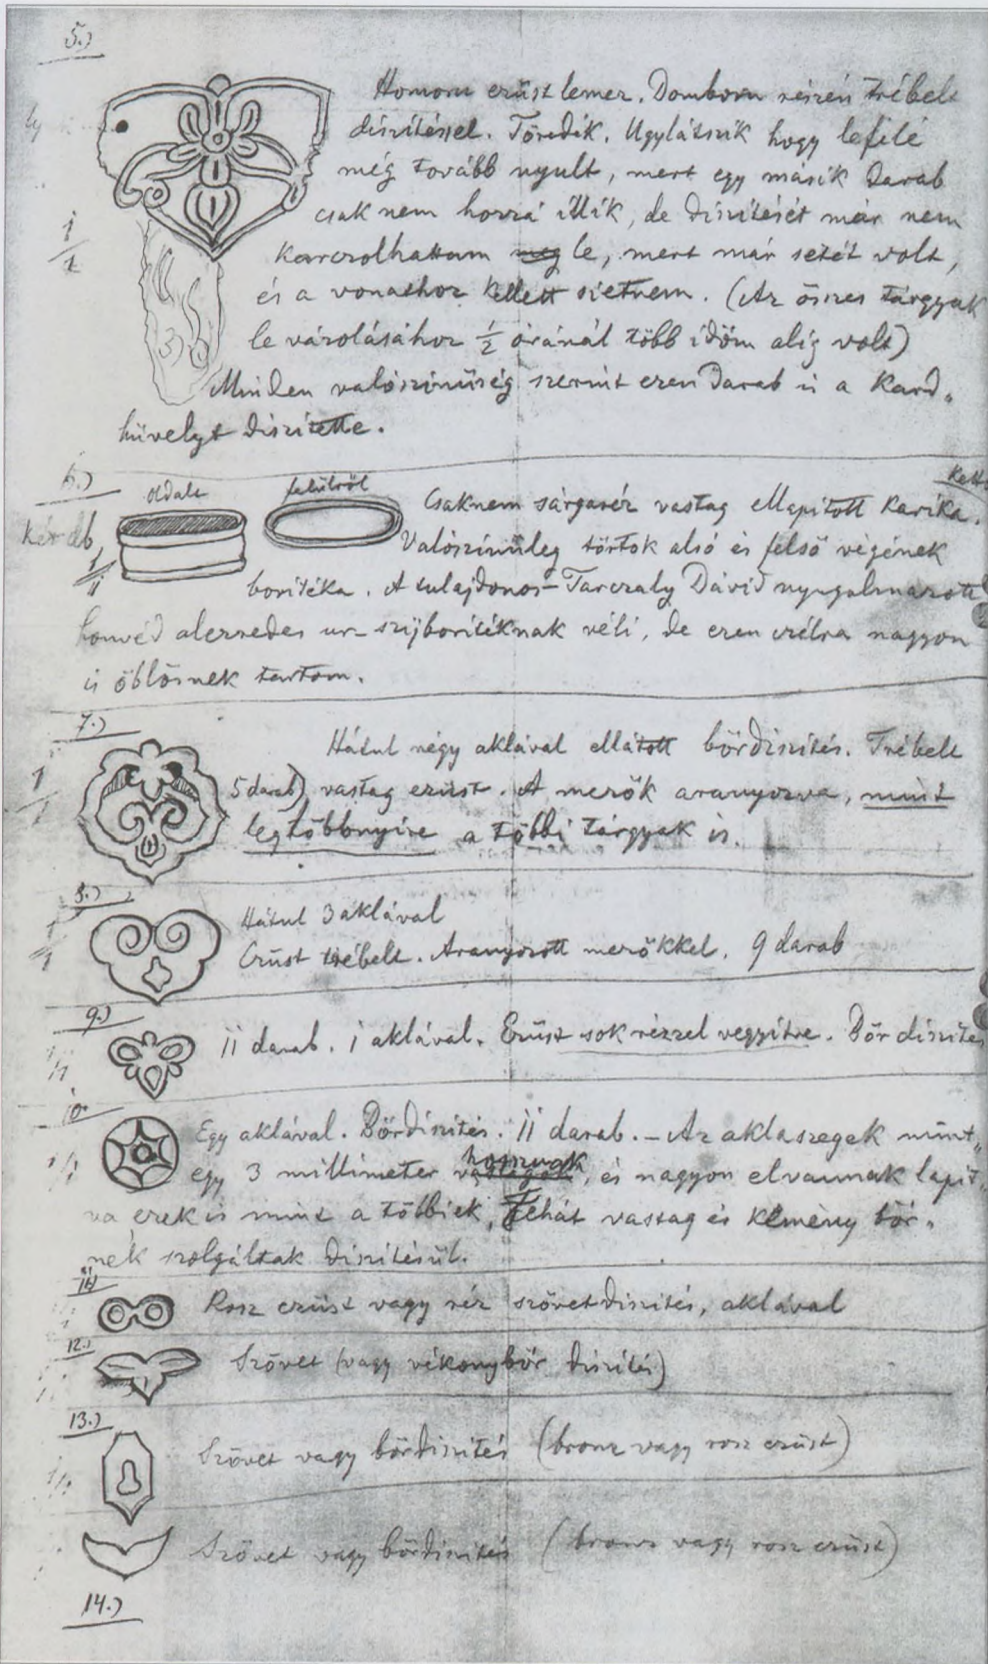 5.)
Homoru ezüst lemez. Domboru részén trébelt
díszítéssel. Töredék. Ugylátszik hogy lefelé
még tovább nyult, mert egy másik darab
csak nem hozzá illik, de díszítését már nem
karczolhattam meg le, mert már setét volt,
és a vonathoz kellett sietnem. (Az összes tárgyak
le vázolásához ½ óránál több időm alig volt)
Minden valószinüség szerint ezen darab is a kard„
hüvelyt díszítette.
1/1
6.)
oldalt
felülről
két db
1/1
Csaknem sárgaréz vastag ellapitott karika.
Valószinüleg tőrtok alsó és felső végének
boritéka. A tulajdonos – Tarczaly Dávid nyugalmazott
honvéd alezredes ur – szijboritéknak véli, de ezen czélra nagyon
is öblösnek tartom.
7.)
1/1
Hátul négy aklával ellátott bördiszités. Trébelt
5 darab) vastag ezüst. A mezők aranyozva, mint
legtöbbnyire a többi tárgyak is.
8.)
1/1
Hátul 3 aklával
Ezüst trébelt. Aranyozott mezőkkel. 9 darab
9.)
1/1
11 darab. 1 aklával. Ezüst sok rézzel vegyitve. Bőr diszités
10.
1/1
Egy aklával. Bördiszités. 11 darab. – Az aklaszegek mint„
hosszuak
egy 3 millimeter vastagok, és nagyon elvannak lapit„
va ezek is mint a többiek, Tehát vastag és kemény bőr„
nek szolgáltak diszitésül.
11)
Rosz ezüst vagy réz szövetdiszités, aklával
12.)
Szövet (vagy vékonybőr diszités)
13.)
1/1
Szövet vagy bördiszités (bronz vagy rosz ezüst)
Szövet vagy bördiszités (bronz vagy rosz ezüst)
14.)